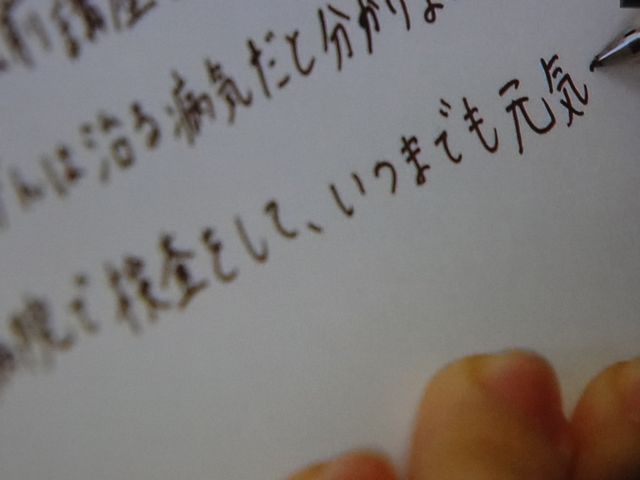 前講座
んは治る病気だと分かりま
病院で検査をして、いつまでも元気